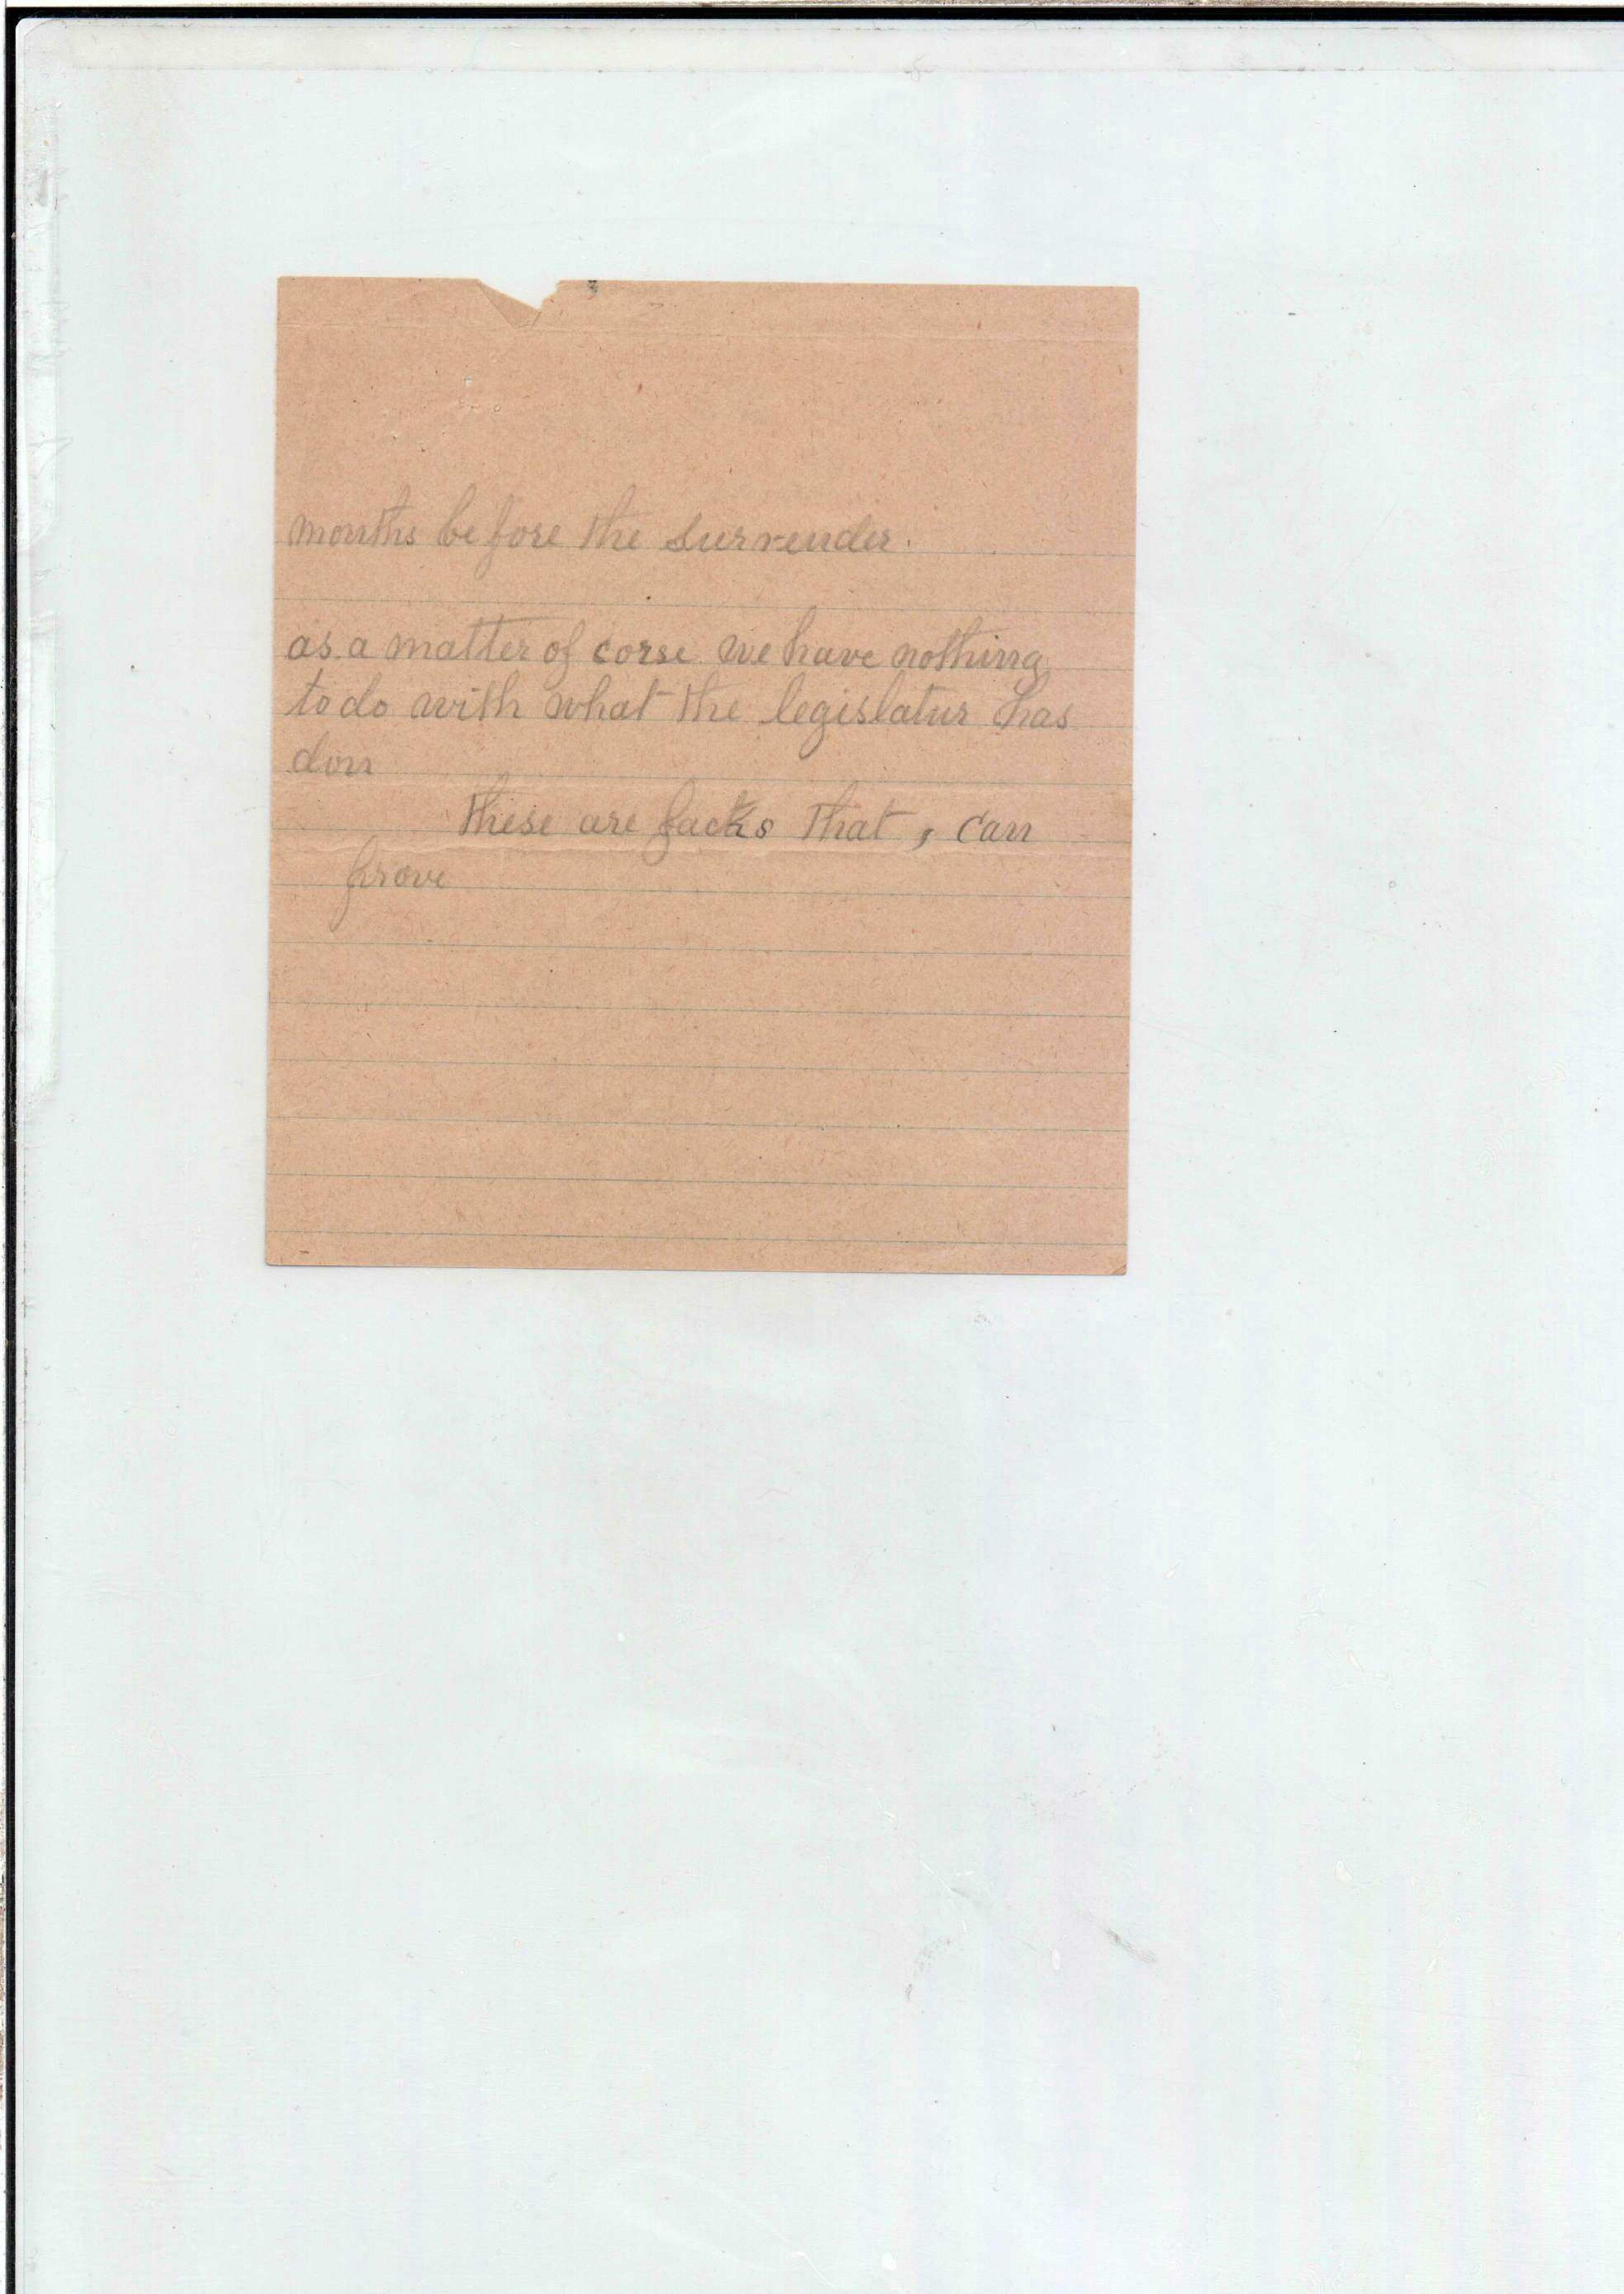 months before the surrender.
as a matter of corse we have nothing
to do with what the legislatur has
don
these are facks that , can
prove